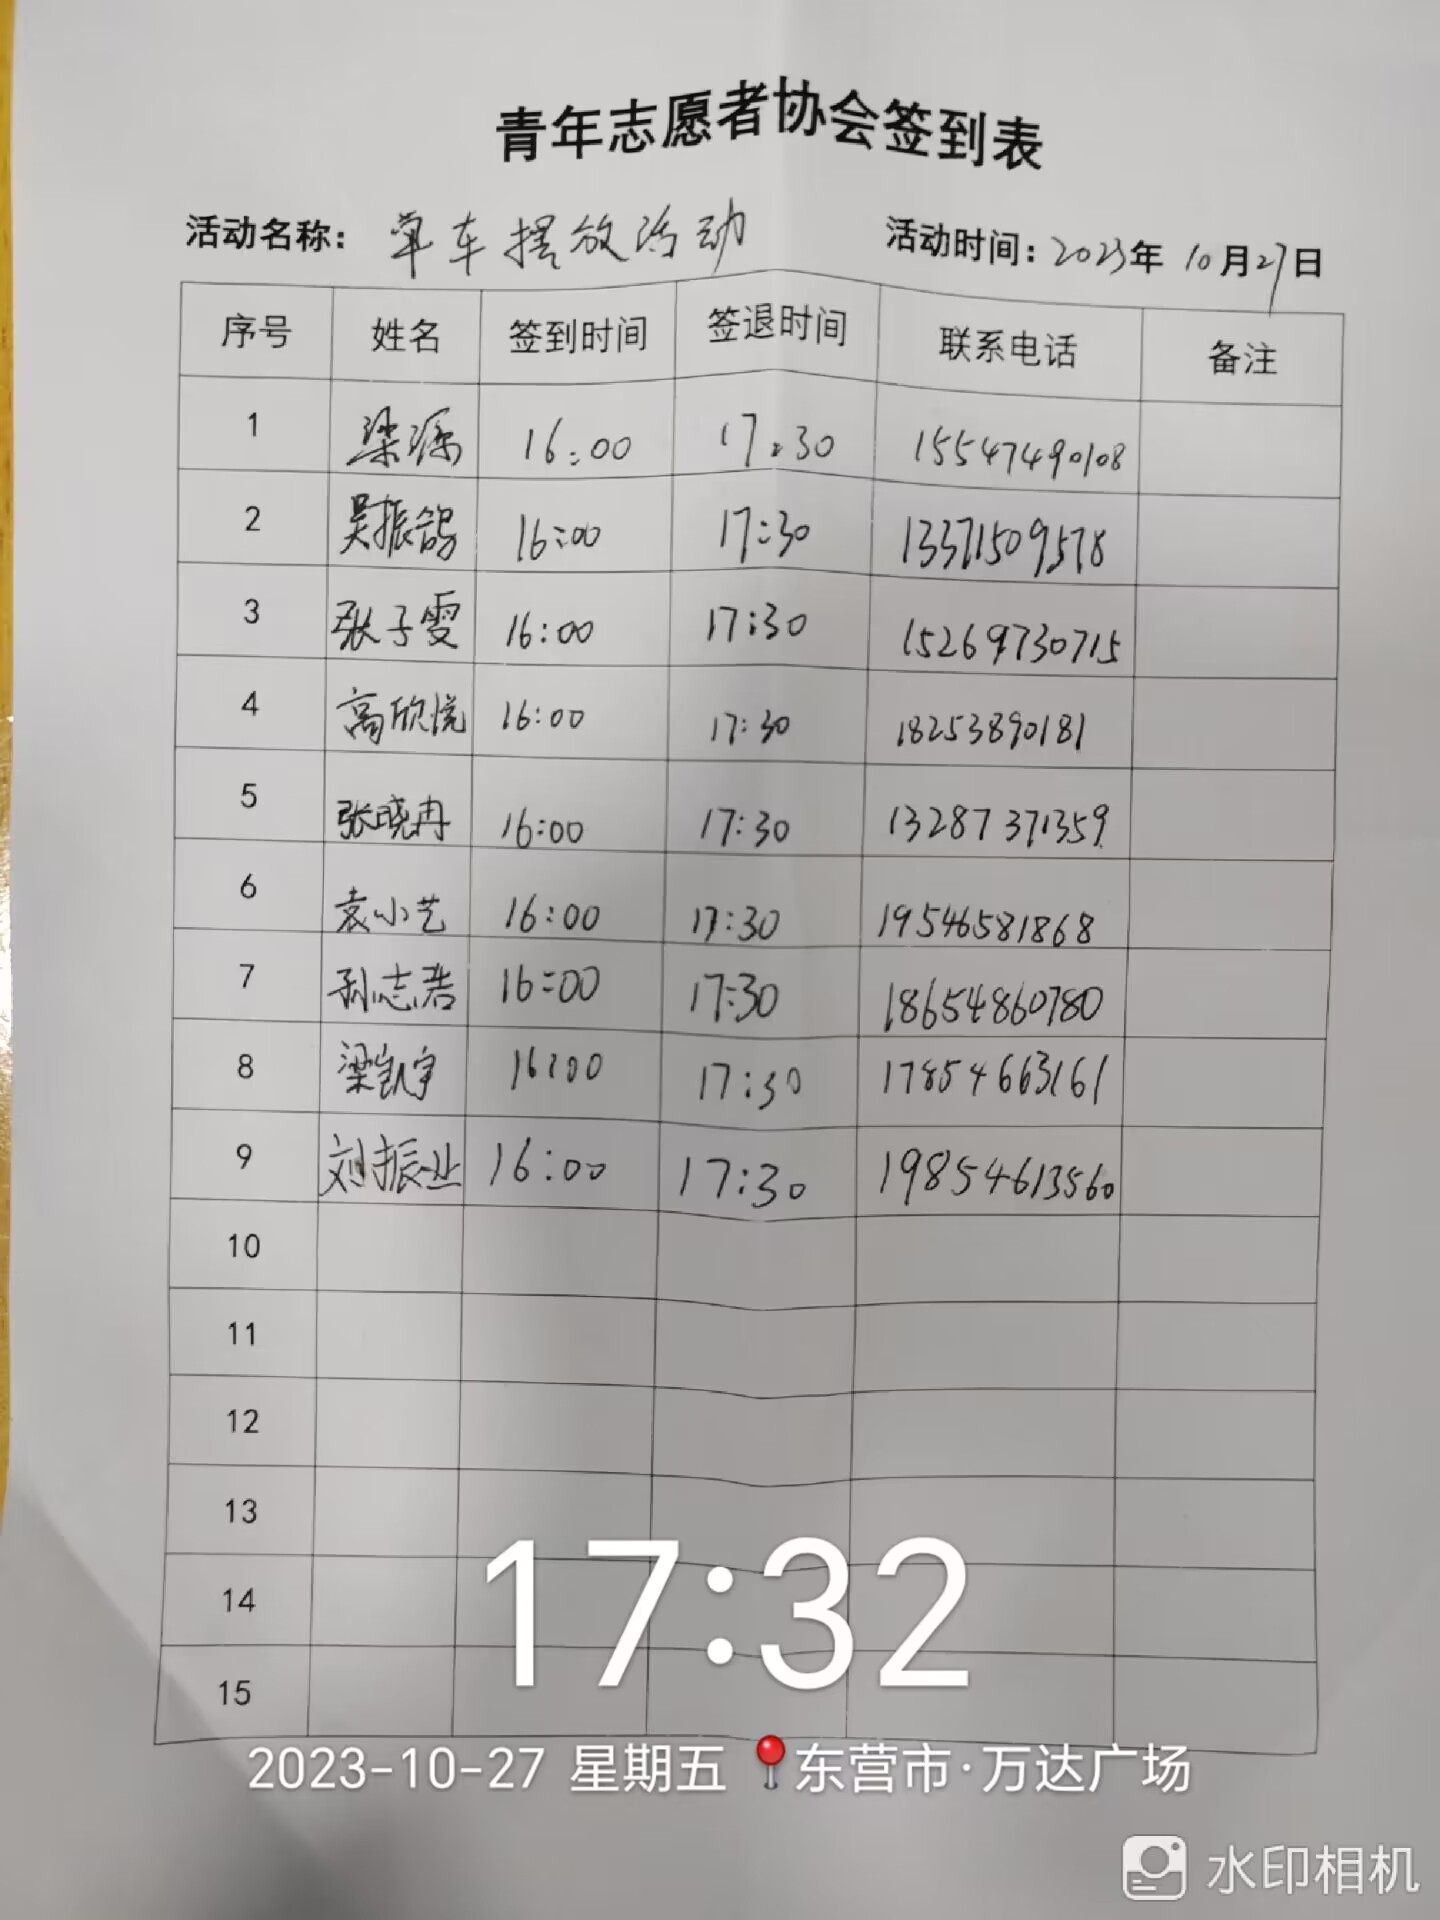 青年志愿者协会签到表
活动名称: 单车摆放活动 活动时间: 2023年 10月27日
序号 姓名 签到时间 签退时间 联系电话 备注
1 梁源 16:00 17:30 15547490108
2 吴振鸽 16:00 17:30 13371509578
3 张子雯 16:00 17:30 15269730715
4 高欣悦 16:00 17:30 18253890181
5 张晓冉 16:00 17:30 13287371359
6 袁小艺 16:00 17:30 19546581868
7 孙志浩 16:00 17:30 18654860780
8 梁凯宇 16:00 17:30 17854663161
9 刘振业 16:00 17:30 19854613560
10
11
12
13
14
15
17:32
2023-10-27 星期五 东营市·万达广场
水印相机